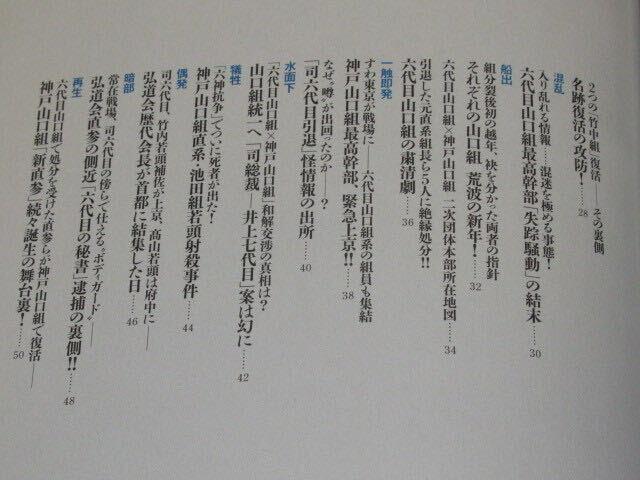 2つの「竹中組」復活――その裏側
名跡復活の攻防！……28
混乱
入り乱れる情報……混迷を極める事態！
六代目山口組最高幹部「失踪騒動」の結末……30
船出
組分裂後初の越年、袂を分かった両者の指針
それぞれの山口組 荒波の新年！……32
六代目山口組×神戸山口組 二次団体本部所在地図……34
引退した元直系組長ら5人に絶縁処分!!
六代目山口組の粛清劇……36
一触即発
すわ東京が戦場に――六代目山口組系の組員も集結
神戸山口組最高幹部、緊急上京!!……38
なぜ“噂”が出回ったのか――？
「司六代目引退」怪情報の出所……40
水面下
「六代目山口組×神戸山口組」和解交渉の真相は？
山口組統一へ「司総裁―井上七代目」案は幻に……42
犠牲
「六神抗争」でついに死者が出た！
神戸山口組直系・池田組若頭射殺事件……44
偶発
司六代目、竹内若頭補佐が上京、髙山若頭は府中に――
弘道会歴代会長が首都に結集した日……46
暗部
常在戦場、司六代目の傍らで仕える“ボディガード”――
弘道会直参の側近「六代目の秘書」逮捕の裏側!!……48
再生
六代目山口組で処分を受けた直参らが神戸山口組で復活――
神戸山口組「新直参」続々誕生の舞台裏！……50